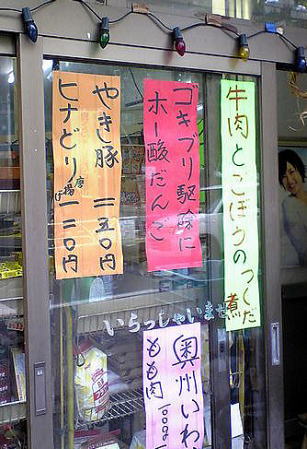 牛肉とごぼうのつくだ煮
ゴキブリ駆除に
ホー酸だんご
やき豚 一五〇円
ヒナどり 唐揚げ 一二〇円
いらっしゃいませ
奥州いわ
もも肉 100g